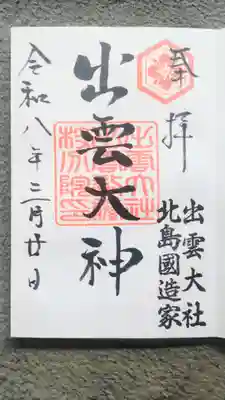 奉拝
出雲大社
北島國造家
出雲大神
令和八年二月廿日